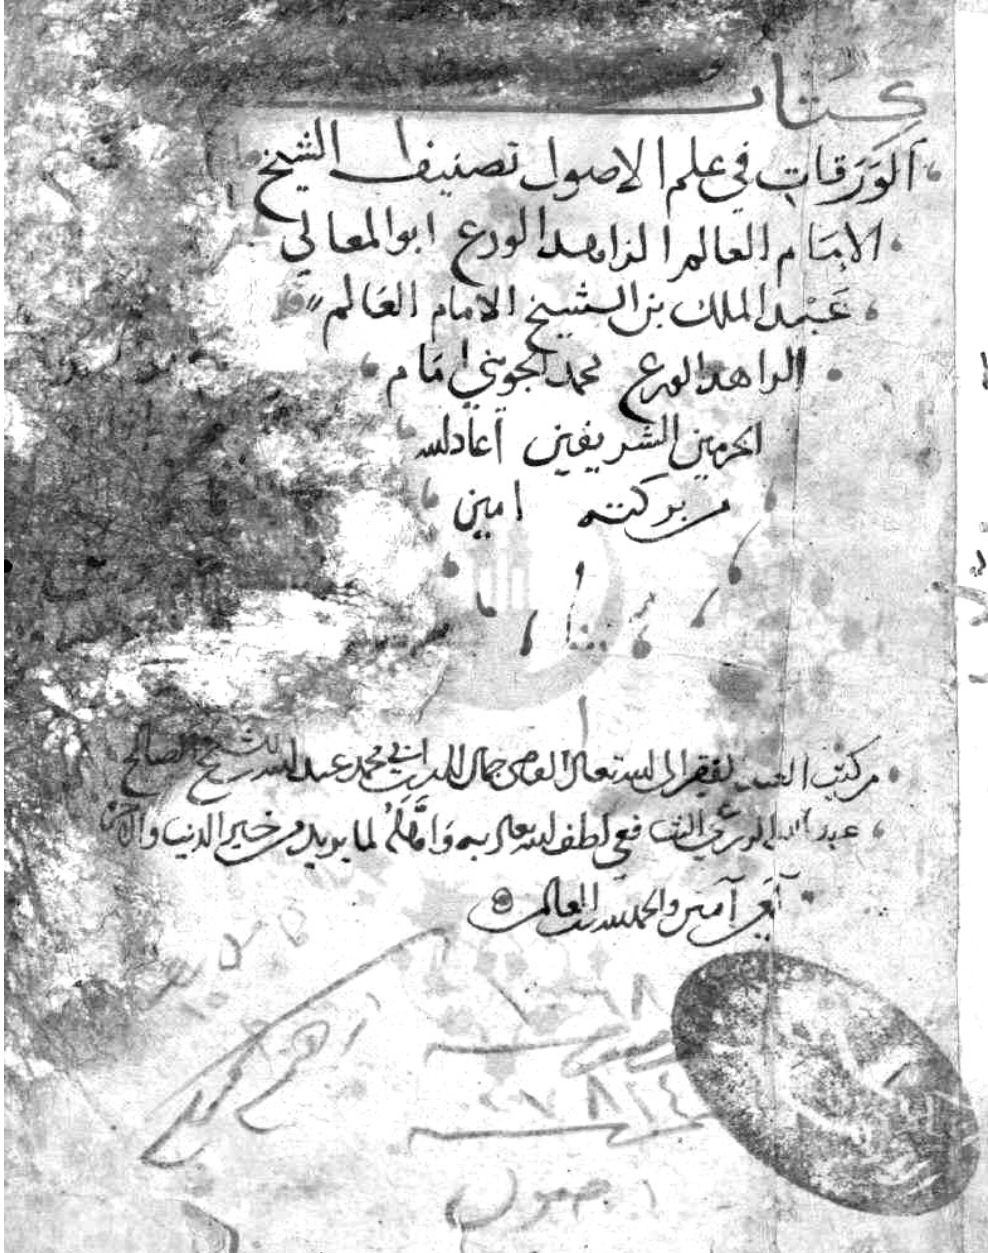 كتاب
الوَرَقات في علم الاصول تصنيف الشيخ
الامام العالم الزاهد الورع ابو المعالي
عَبْد الملك بن الشيخ الامام العَالم
الزاهد الورع محمد الجويني امَام
الحرمين الشريفين اعاد الله
من بركته امين
من كتب العبد الفقير الى الله تعالى القاضي جمال الدين ابي محمد عبد الله الشيخ الصالح
عبد الله الشافعي لطف الله تعالى به وَ لما يريد من خير الدنيا والاخرة
آمين والحمد لله رب العالمين
٤٧٨٢٤
اصول